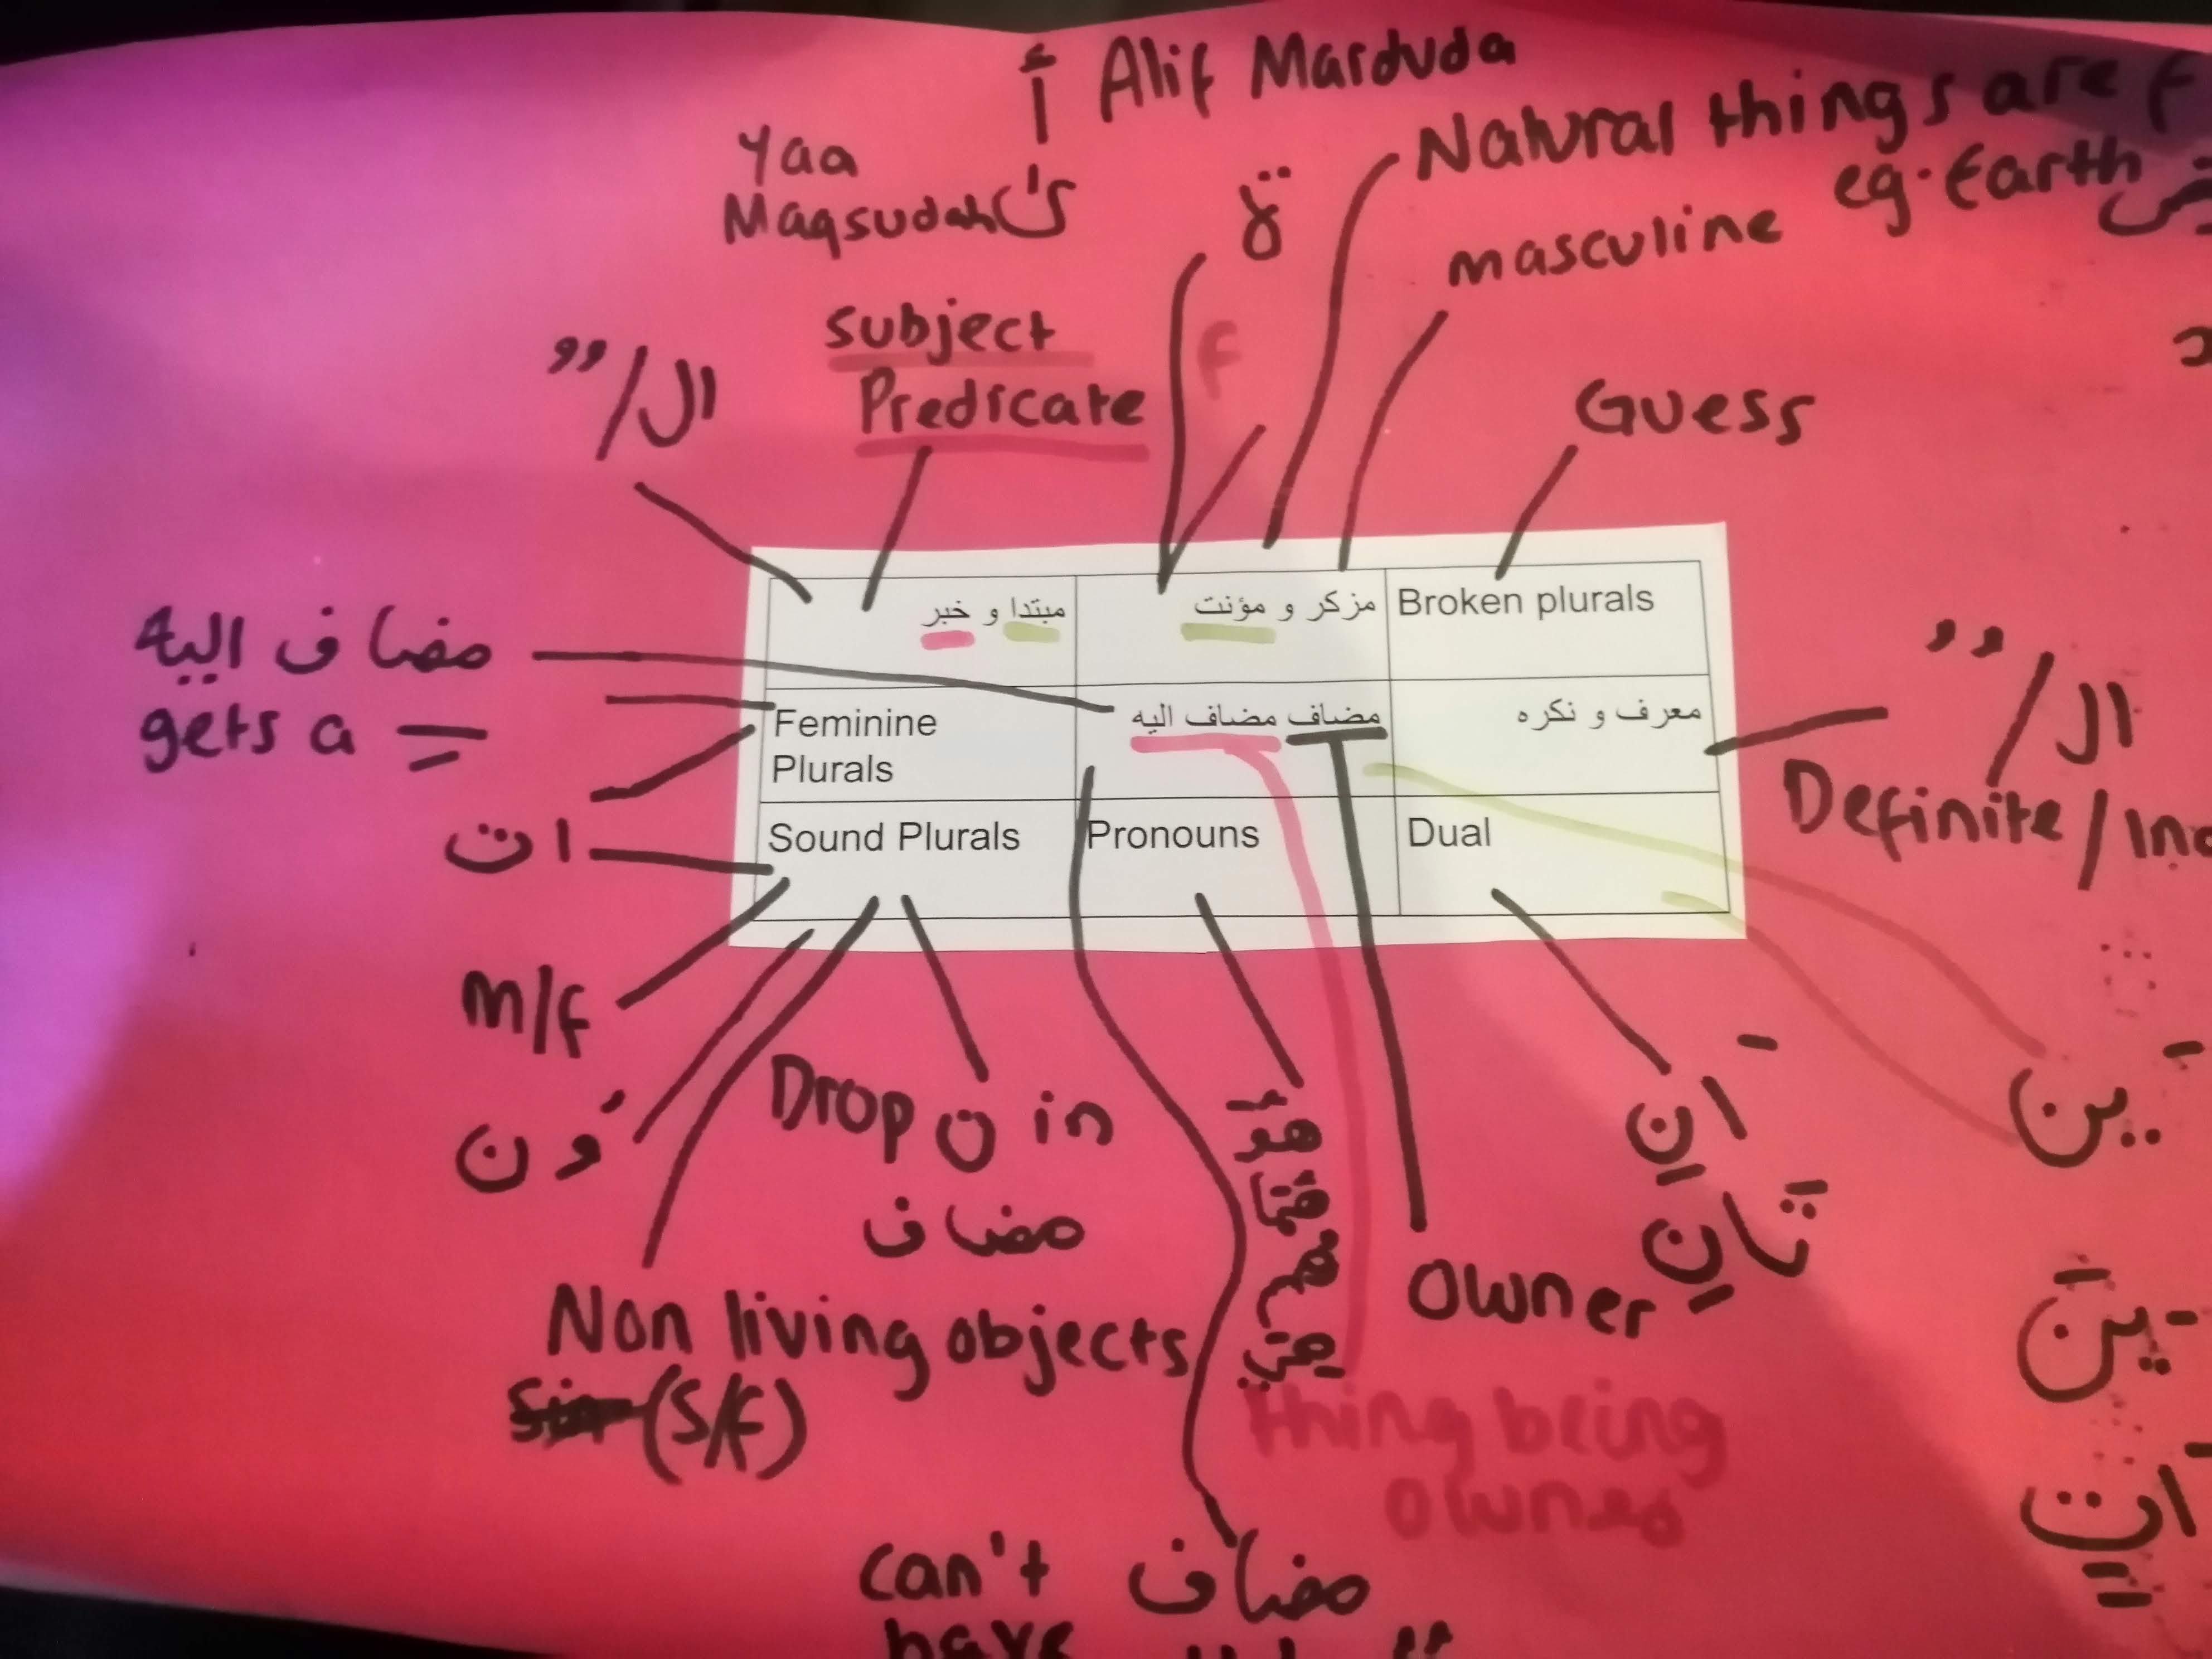 أ Alif Marduda
Yaa
Maqsudah
ة
Natural things are f
eg. Earth
masculine
ال/
subject
Predicate
F
Guess
مبتدا و خبر
مزكر و مؤنت
Broken plurals
مضاف اليه
gets a
Feminine
Plurals
مضاف مضاف اليه
معرف و نكره
ال/
Definite/
ات
Sound Plurals
Pronouns
Dual
m/f
ُون
Drop ن in
مضاف
Non living objects
(S/F)
هم
ان
ان
َين
Owner
thing being
owned
ات
can't مضاف
have